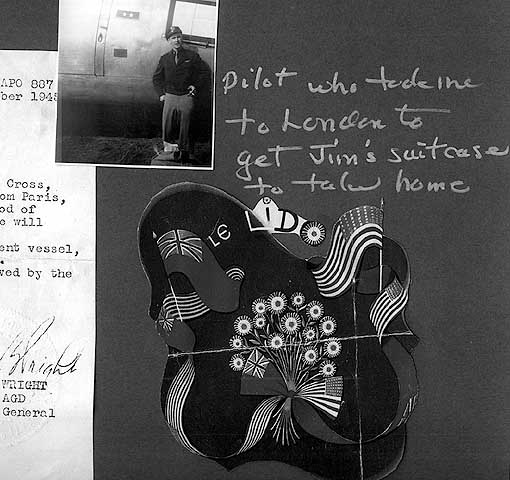 APO 887
ber 1945
Cross,
om Paris,
od of
e will
ent vessel,
ved by the
Wright
WRIGHT
AGD
General
Pilot who took me
to London to
get Jim's suitcase
to take home
LE LiDO